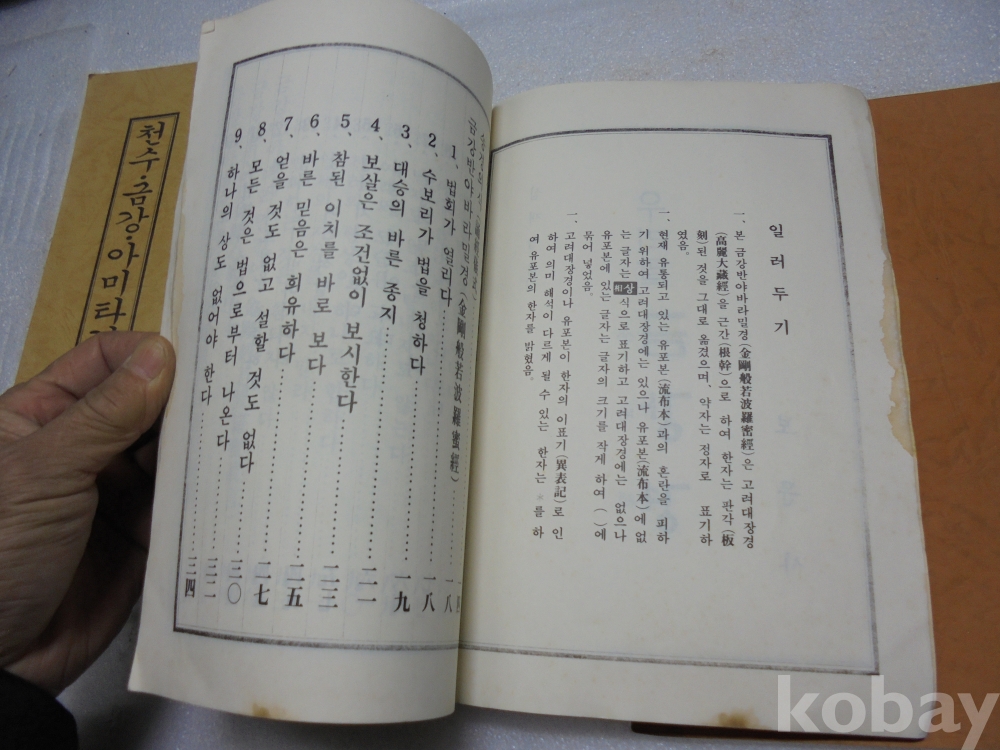 일러두기
一. 본 금강반야바라밀경(金剛般若波羅密經)은 고려대장경
(高麗大藏經)을 근간(根幹)으로 하여 한자는 판각(板
刻)된 것을 그대로 옮겼으며, 약자는 정자로 표기하
였음.
一. 현재 유통되고 있는 유포본(流布本)과의 혼란을 피하
기 위하여 고려대장경에는 있으나 유포본(流布本)에 없
는 글자는 相상 식으로 표기하고 고려대장경에는 없으나
유포본에 있는 글자는 글자의 크기를 작게 하여 ( )에
묶어 넣었음.
一. 고려대장경이나 유포본이 한자의 이표기(異表記)로 인
하여 의미 해석이 다르게 될 수 있는 한자는 ※를 하
여 유포본의 한자를 밝혔음.
금강반야바라밀경(金剛般若波羅密經)……一八
1、법회가 열리다……一八
2、수보리가 법을 청하다……一九
3、대승의 바른 종지……二一
4、보살은 조건없이 보시한다……二三
5、참된 이치를 바로 보다……二五
6、바른 믿음은 희유하다……二七
7、얻을 것도 없고 설할 것도 없다……三〇
8、모든 것은 법으로부터 나온다……三二
9、하나의 상도 없어야 한다……三四
천수·금강·아미타
kobay